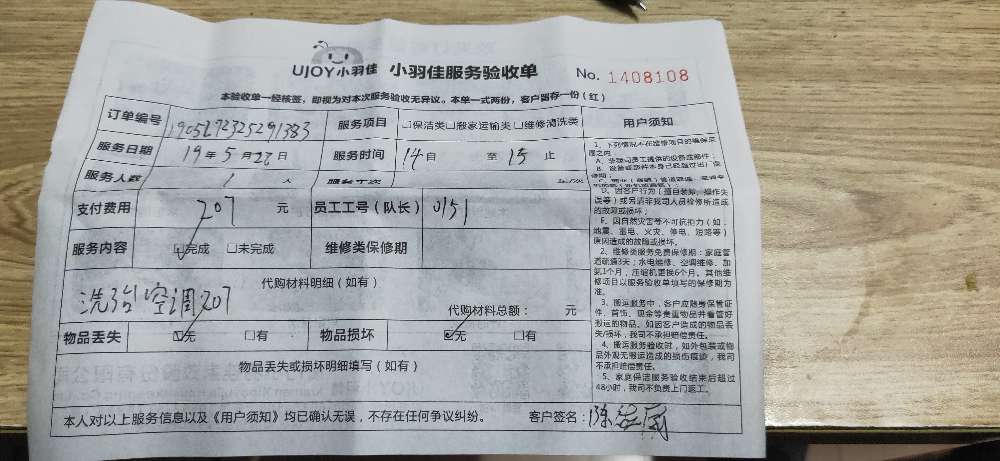 UJOY小羽佳 小羽佳服务验收单 No. 1408108
本验收单一经核签，即视为对本次服务验收无异议。本单一式两份，客户留存一份（红）
订单编号 1905272325291383 服务项目 □保洁类□搬家运输类□维修清洗类 用户须知
服务日期 19年5月28日 服务时间 14自 至 15止
服务人数 1 人
支付费用 207 元 员工工号（队长） 0151
服务内容 ☑完成 □未完成 维修类保修期
代购材料明细（如有）
空调207
代购材料总额： 元
物品丢失 ☑无 □有 物品损坏 ☑无 □有
物品丢失或损坏明细填写（如有）
本人对以上服务信息以及《用户须知》均已确认无误，不存在任何争议纠纷。 客户签名：
1、下列情况不在维修项目的质保范
围之内
A、非我司员工提供的设备或部件；
D、因客户行为（擅自装卸、操作失
误等）或另请非我司人员检修所造成
的故障或损坏；
E、因自然灾害等不可抗拒力（如：
地震、雷电、火灾、停电、短路等）
原因造成的故障或损坏。
2、维修类服务免费保修期：家庭管
道疏通3天；水电维修、空调维修、加
氨1个月，压缩机更换6个月。其他维
修项目以服务验收单填写的保修期为
准。
3、搬运服务中，客户应随身保管证
件、首饰、现金等贵重物品并看管好
搬运的物品。如因客户造成的物品丢
失/损坏，我司不承担赔偿责任。
4、搬运服务验收时，如外包装或物
品外观无搬运造成的损伤痕迹，我司
不承担赔偿责任。
5、家庭保洁服务验收结束后超过
48小时，我司不负责上门返工。